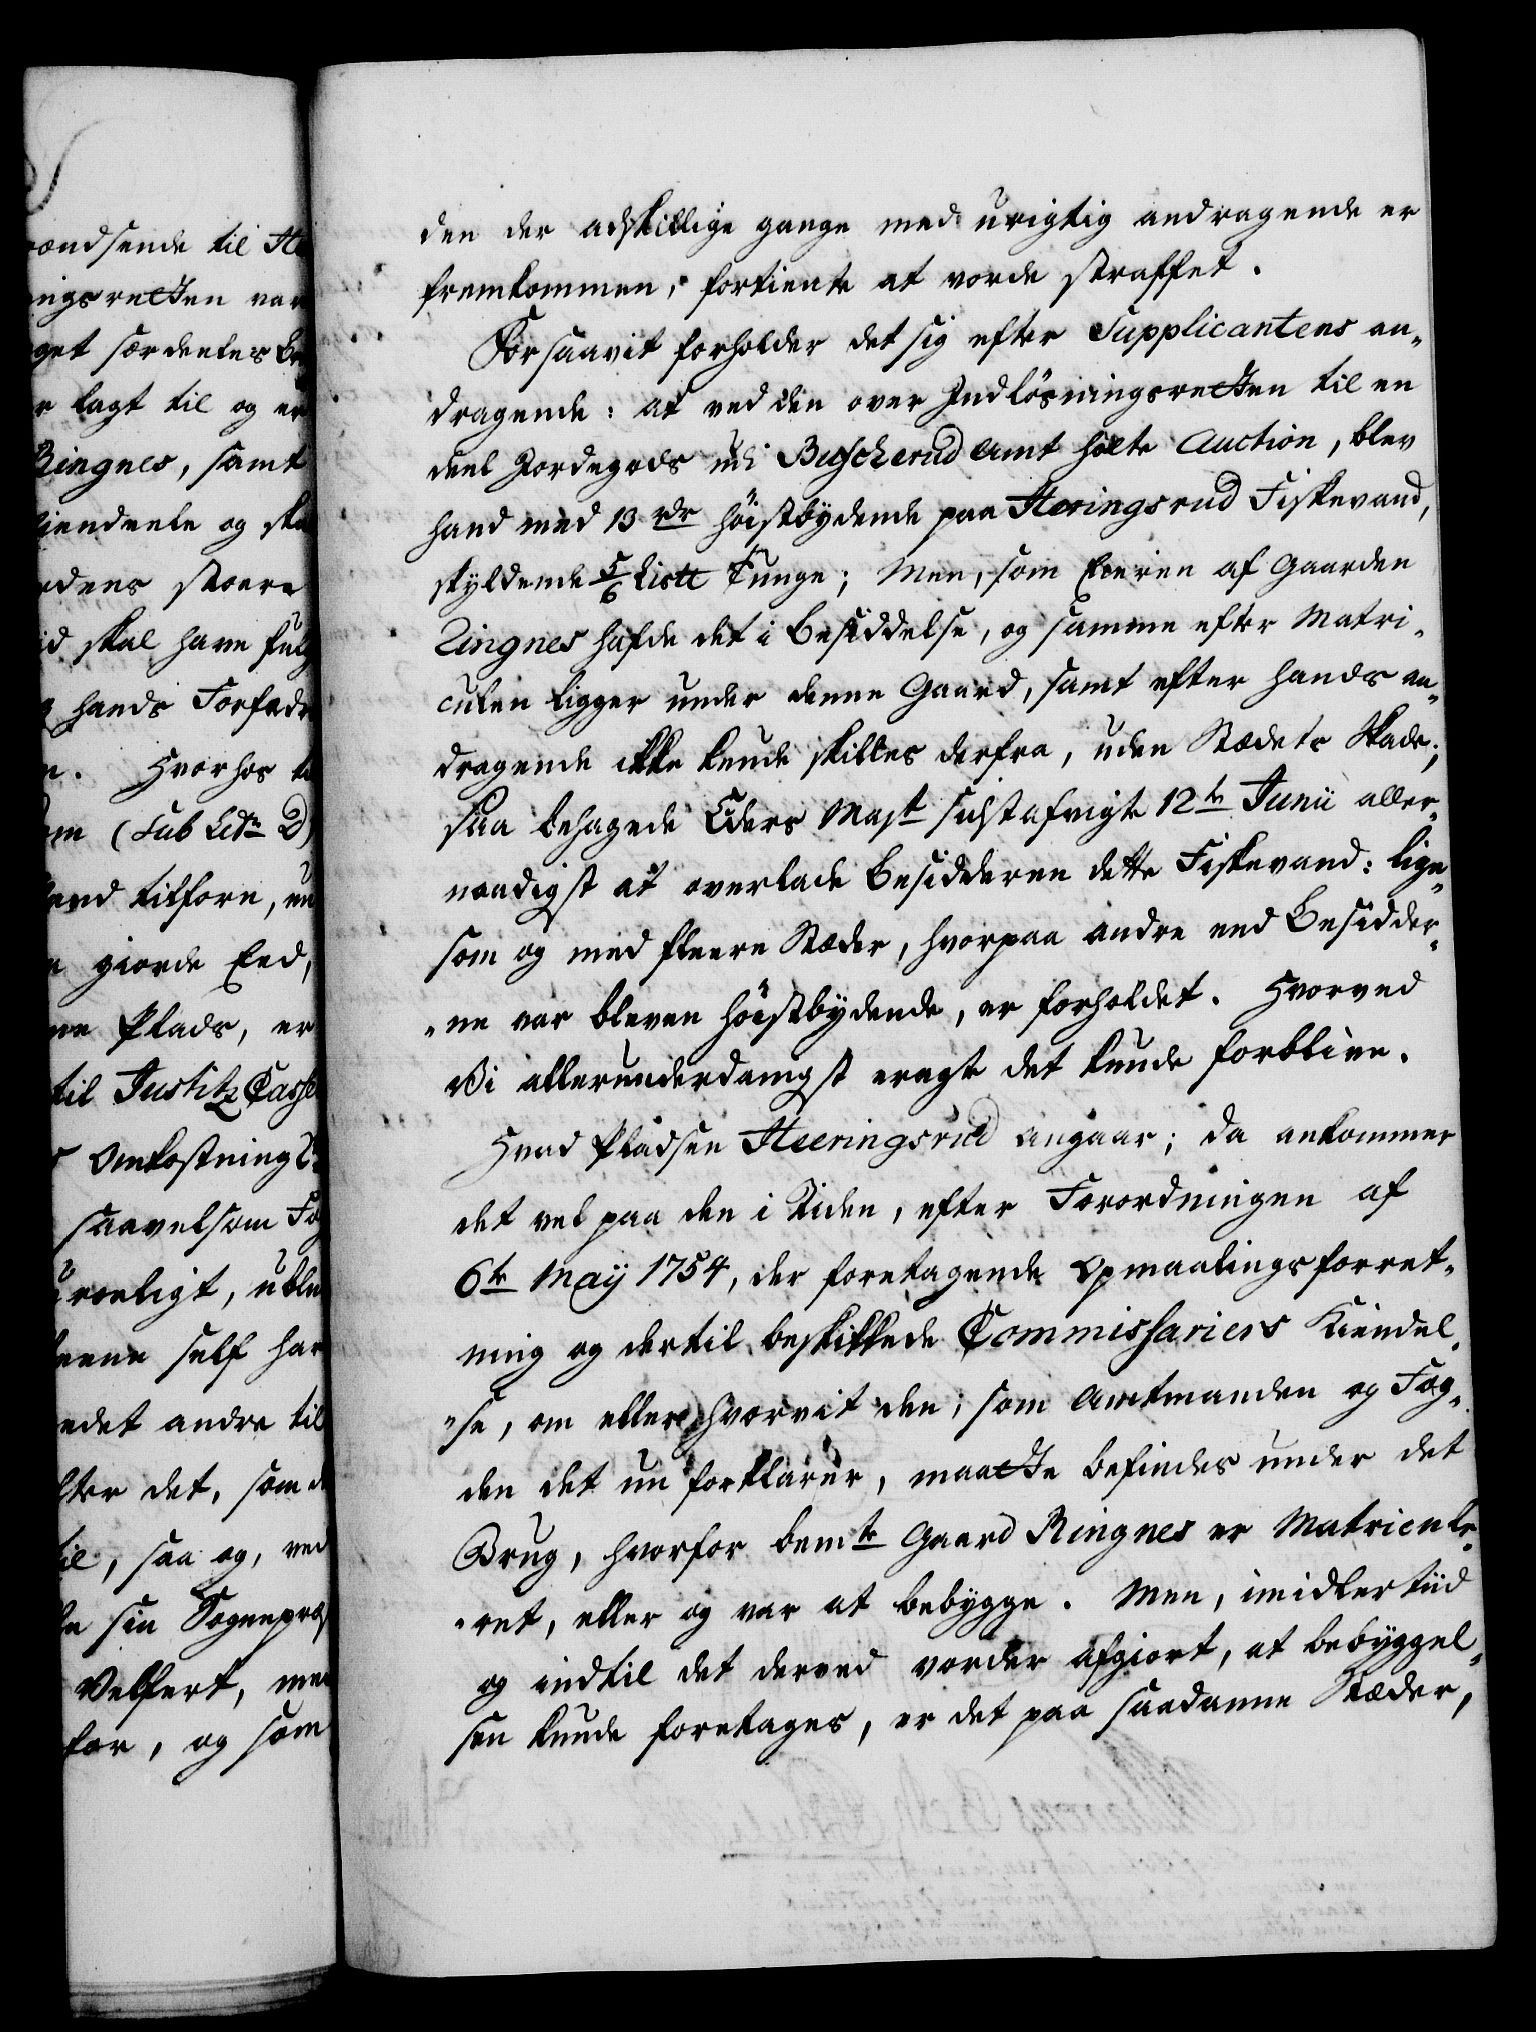 rændsende til He
ingsretten var
get særdeeles be
r lagt til og er
Ringnes, samt
iendeele og ska
rdens større
id skal have fulg
hands Forfædr
n. Hvorhos
om (Sub Litr D)
and tilforn, un
giorde Eed,
ne Plads, er
til Justitz Casse
Omkostning
saavelsom Fo
roeligt, uble
eene self har
edet andre til
ter det, som d
til, saa og, ved
sin Sognepræ
Velfert, me
for, og som
den der adskillige gange med urigtig andragende er
fremkommen, fortiente at vorde straffet.
Forsaavit forholder det sig efter Supplicantens an-
dragende: at ved den over Indløsningsretten til en
deel Jordegods udi Buscherud Amt holte Auction, blev
hand med 13 rdr høistbydende paa Heeringsrud Fiskevand,
skyldende 5/6 Liste Tunge; Men, som Eieren af Gaarden
Ringnes hafde det i Besiddelse, og samme efter Matri-
culen ligger under denne Gaard, samt efter hands an-
dragende ikke kunde skilles derfra, uden Stædets Skade;
saa behagede Eders Majt sidstafvigte 12te Junii aller-
naadigst at overlade Besidderen dette Fiskevand: lige-
som og med fleere Stæder, hvorpaa andre end Besidder-
ne var bleven høistbydende, er forholdet. Hvorved
Vi allerunderdanigst eragte det kunde forblive.
Hvad Pladsen Heeringsrud angaar; da ankommer
det vel paa den i Tiden, efter Forordningen af
6te Maÿ 1754, der foretagende Opmaalingsforret-
ning og dertil beskikkede Commissariers Kiendel-
se, om eller hvorvit den, som Amtmanden og Fog-
den det nu forklarer, maatte befindes under det
Brug, hvorfor bemte Gaard Ringnes er Matricule-
ret, eller og var at bebygge. Men, imidlertiid
og indtil det derved vorder afgiort, at bebyggel-
sen kunde foretages, er det paa saadanne Stæder,